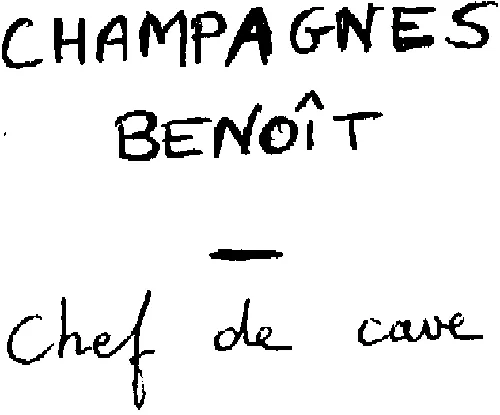 CHAMPAGNES
BENOÎT
—
Chef de cave